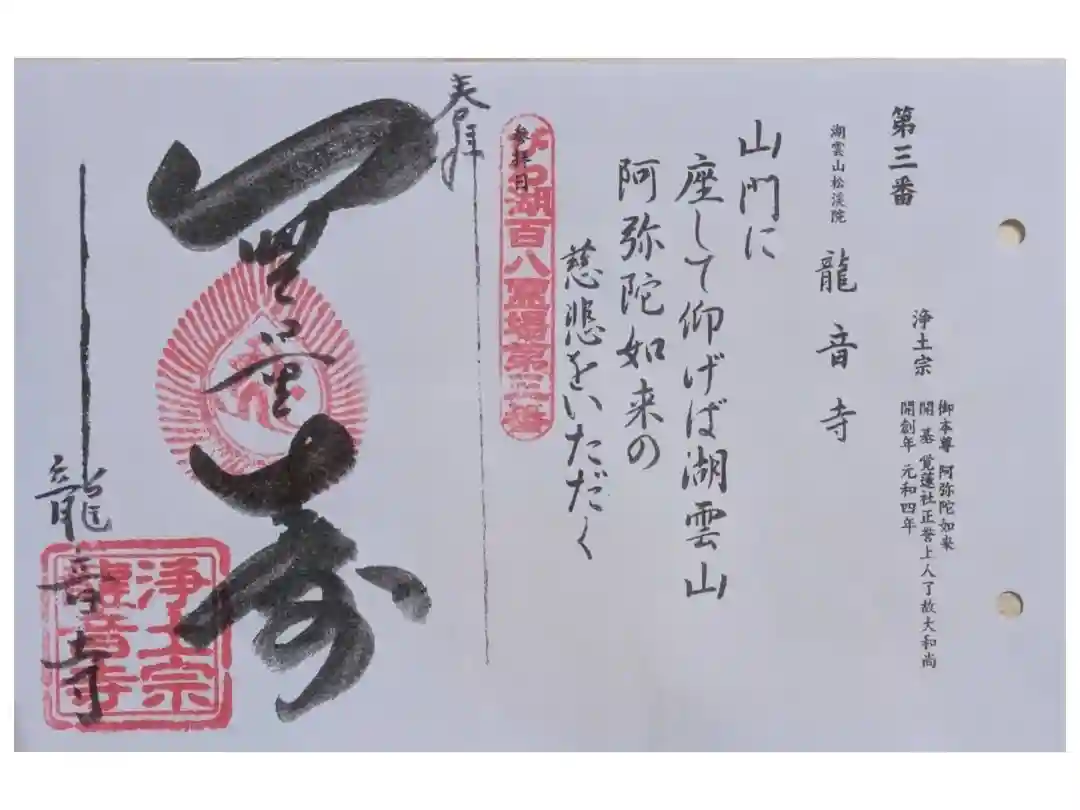 第三番
浄土宗
御本尊 阿弥陀如来
開基 覚蓮社正誉上人了故大和尚
開創年 元和四年
湖雲山松渓院 龍音寺
山門に
座して仰げば湖雲山
阿弥陀如来の
慈悲をいただく
びわ湖百八霊場第三番
参拝日
奉拝
無量寿
龍音寺
浄土宗
龍音寺